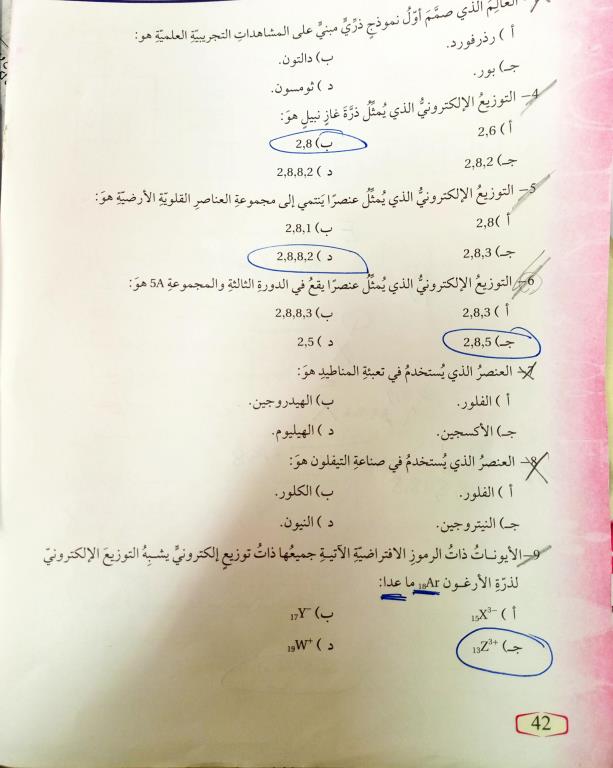 العالِمُ الذي صمَّمَ أوَّلُ نموذجٍ ذرِّيٍّ مبنيٍّ على المشاهداتِ التجريبيّةِ العلميّةِ هو:
أ ) رذرفورد. ب) دالتون.
جـ) بور. د ) ثومسون.
4– التوزيعُ الإلكترونيُّ الذي يُمثِّلُ ذرَّةَ غازٍ نبيلٍ هوَ:
أ ) 2,6 ب) 2,8
جـ) 2,8,2 د ) 2,8,8,2
5– التوزيعُ الإلكترونيُّ الذي يُمثِّلُ عنصرًا يَنتمي إلى مجموعةِ العناصرِ القلويّةِ الأرضيّةِ هوَ:
أ ) 2,8 ب) 2,8,1
جـ) 2,8,3 د ) 2,8,8,2
6– التوزيعُ الإلكترونيُّ الذي يُمثِّلُ عنصرًا يقعُ في الدورةِ الثالثةِ والمجموعةِ 5A هوَ:
أ ) 2,8,3 ب) 2,8,8,3
جـ) 2,8,5 د ) 2,5
7– العنصرُ الذي يُستخدمُ في تعبئةِ المناطيدِ هوَ:
أ ) الفلور. ب) الهيدروجين.
جـ) الأكسجين. د ) الهيليوم.
8– العنصرُ الذي يُستخدمُ في صناعةِ التيفلون هوَ:
أ ) الفلور. ب) الكلور.
جـ) النيتروجين. د ) النيون.
9– الأيونـاتُ ذاتُ الرموزِ الافتراضيّةِ الآتيـةِ جميعُها ذاتُ توزيعٍ إلكترونيٍّ يشبـهُ التوزيعَ الإلكترونيّ
لذرّةِ الأرغـون ₁₈Ar ما عدا:
أ ) ₁₅X³⁻ ب) ₁₇Y⁻
جـ) ₁₃Z³⁺ د ) ₁₉W⁺
42